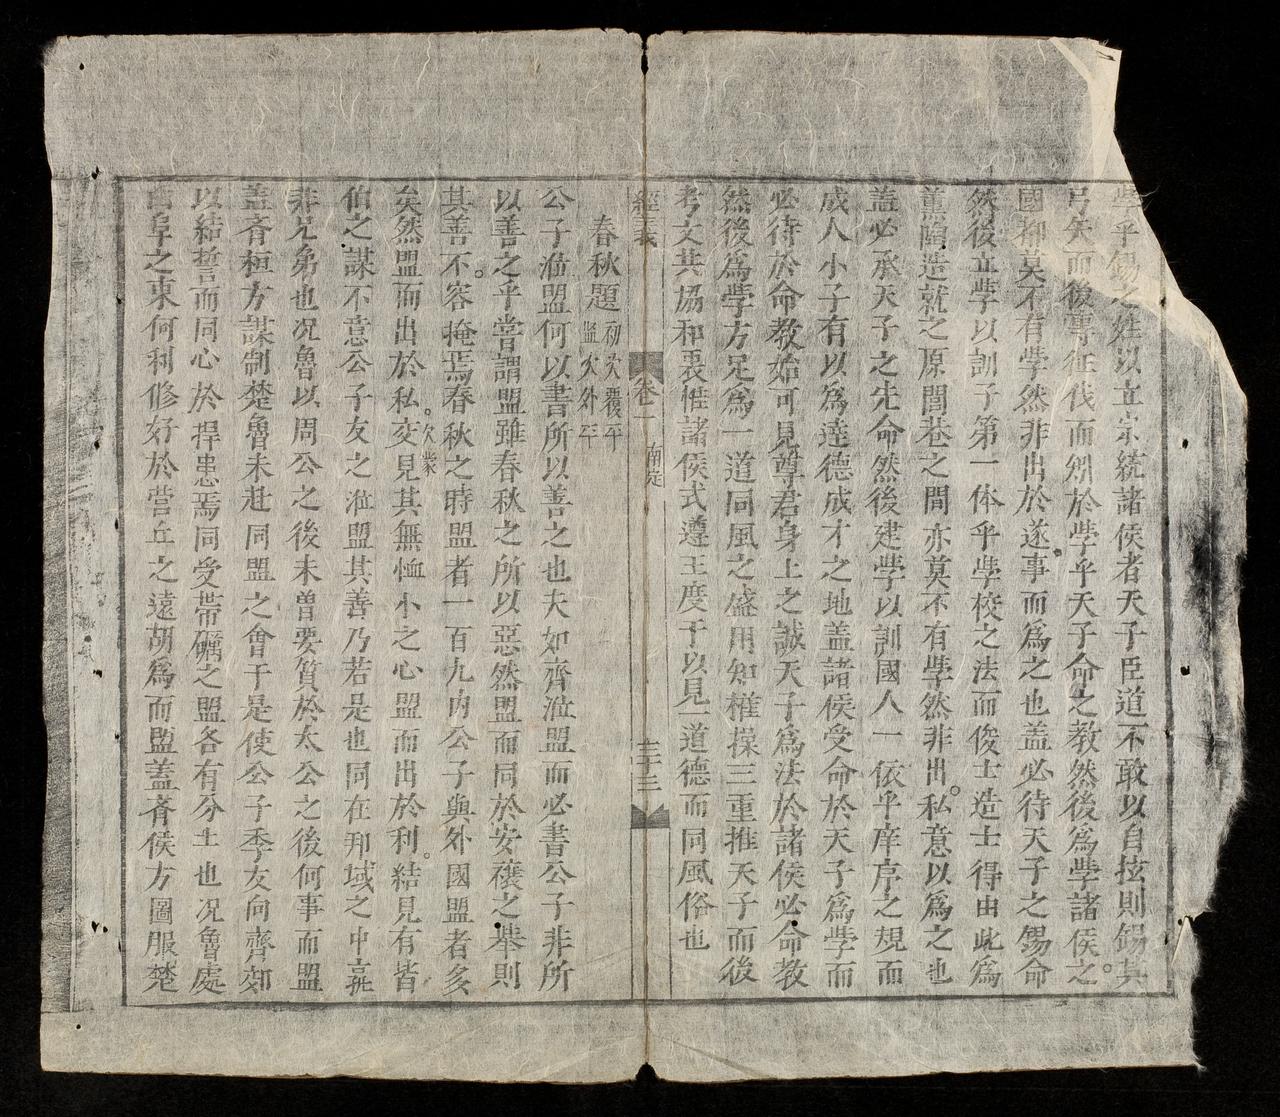 學乎錫之姓以立宗統諸侯者天子臣道一不敢以自㧋則錫其
弓矢而後專征伐而矧於學乎天子命之教然後爲學諸侯之
國抑莫不有學然非出於遂事而爲之也盖必待天子之錫命
然後立學以訓子第一体乎學校之法而俊士造士得由此爲
薰陶造就之原閭巷之間亦莫不有學然非出私意以爲之也
盖必承天子之先命然後建學以訓國人一依乎庠序之規而
成人小子有以爲逹德成才之地盖諸侯受命於天子爲學而
必待於命教始可見尊君身上之誠天子爲法於諸侯必命教
然後爲學方足爲一道同風之盛用知權操三重推天子而後
考文共協和衷惟諸侯式遵王度予以見一道德而同風俗也
經義 卷二 南定 三十三
春秋題 初次覆平 監次外平
公子涖盟何以書所以善之也夫如齊涖盟而必書公子非所
以善之乎嘗謂盟雖春秋之所以惡然盟而同於安穰之舉則
其善不容掩焉春秋之時盟者一百九内公子與外國盟者多
矣然盟而出於私交見其無恤小之心盟而出於利結見有皆
伯之謀不意公子友之涖盟其善乃若是也同在邦域之中
非兄弟也况魯以周公之後未曽要質於太公之後何事而盟
盖斉桓方謀制楚魯未赴同盟之會于是使公子季友向齊郊
以結誓而同心於捍患焉同受帶礪之盟各有分土也况魯處
曲阜之東何利修好於營丘之遠胡爲而盟蓋斉侯方圖服楚